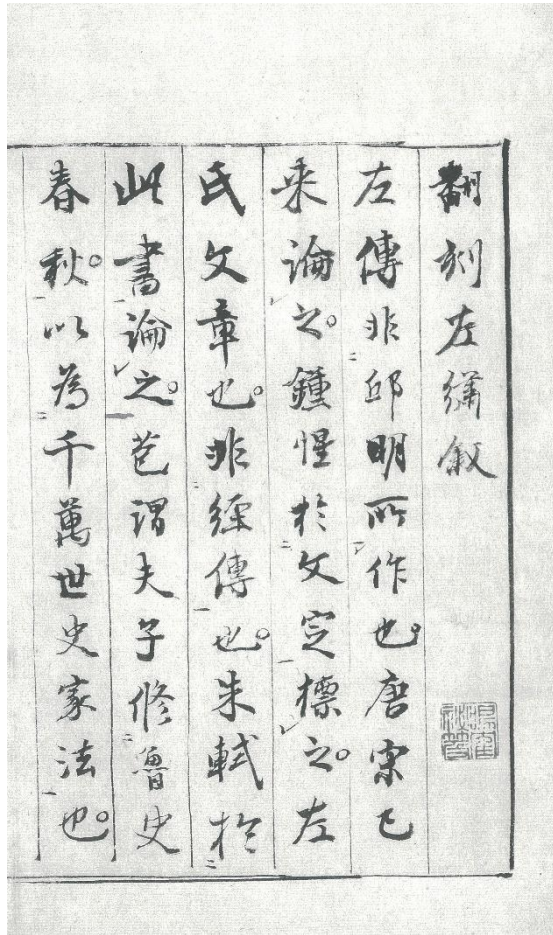 翻刻左繡叙
左傳非邱明所作也。唐宋已
来論之。鍾惺於文定標之。左
氏文章也。非經傳也。朱軾於
此書論之。謂夫子修魯史
春秋。以為千萬世史家法也。